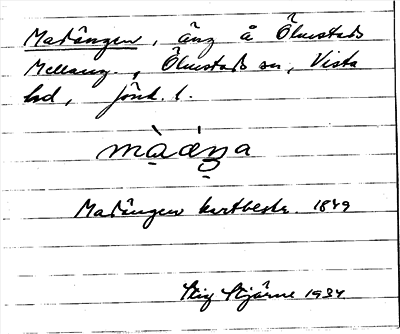 Madängen, äng å Ölmstads
Mellang., Ölmstads sn, Vista
hd, Jönk. l.
màáŋa
Madängen kartbeskr. 1849
Stig Stjärne 1934